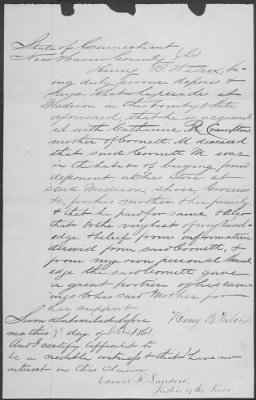 State of Connecticut
New Haven County } SS
Henry B. Wilcox be
ing duly sworn deposes &
says. That he resides at
Madison in the County & State
aforesaid, that he is acquaint
ed with Catharine R Crampton
mother of Cornett M. deceased
that said Cornett M. was
in the habit of buying from
deponent at his Store at
said Madison, shoes, Groceries
&c, for his mother & her family
& that he paid for same, & also
that to the very best of my knowl
edge & belief from information
derived from said Cornett, &
from my own personal knowl
edge the said Cornett gave
a great portion of his earn
ings to his said Mother for
her support
Henry B. Wilcox
Sworn & subscribed before
me this 9th day of 1863
And I certify affiant to
be a credible witness & that I have no
interest in this Claim
Edward R. Landon,
Justice of the Peace.